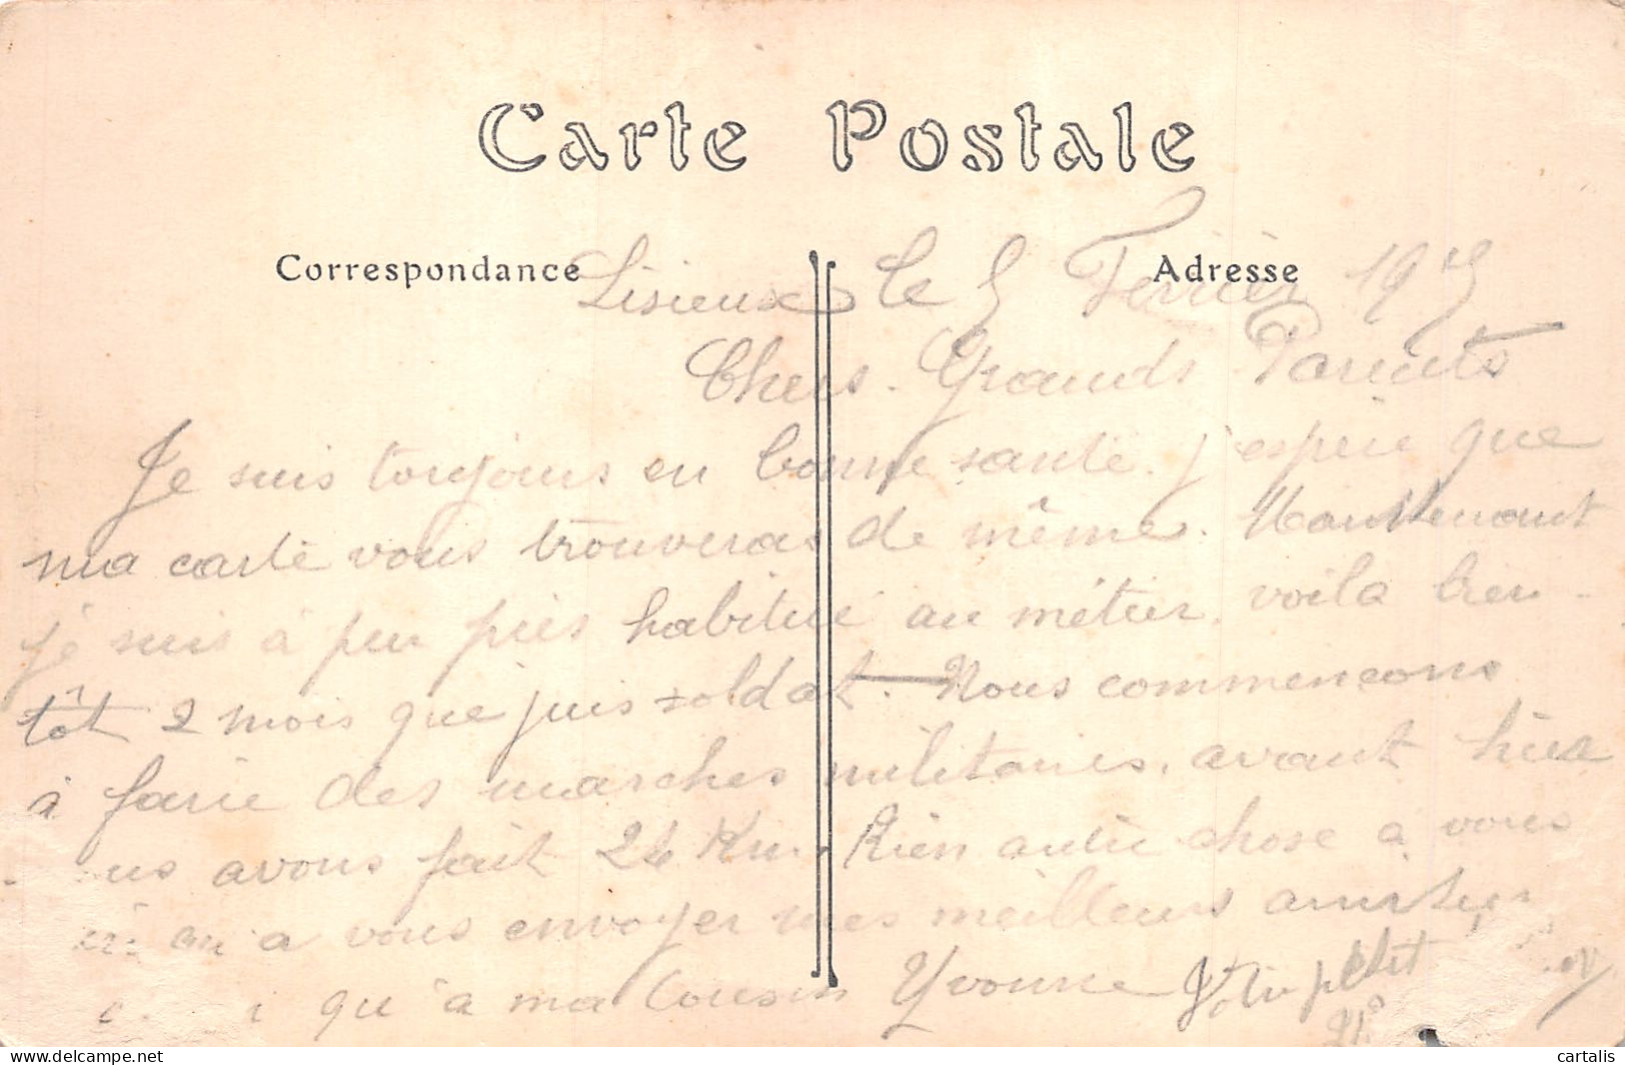 Carte Postale
Correspondance Adresse
Lisieux le 5 Fevrier 19
Chers Grands Parents
Je suis toujours en bonne santé. j'espère que
ma carte vous trouveras de même. Maintenant
je suis à peu près habitué au métier. voilà bien-
tôt 2 mois que juis soldat. — Nous commencons
à faire des marches militaires, avant hier
us avons fait 24 Km. Rien autre chose à vous
qu'a vous envoyer mes meilleurs amitiés
i qu'à ma Cousin Yvonne Votre petit
cartalis